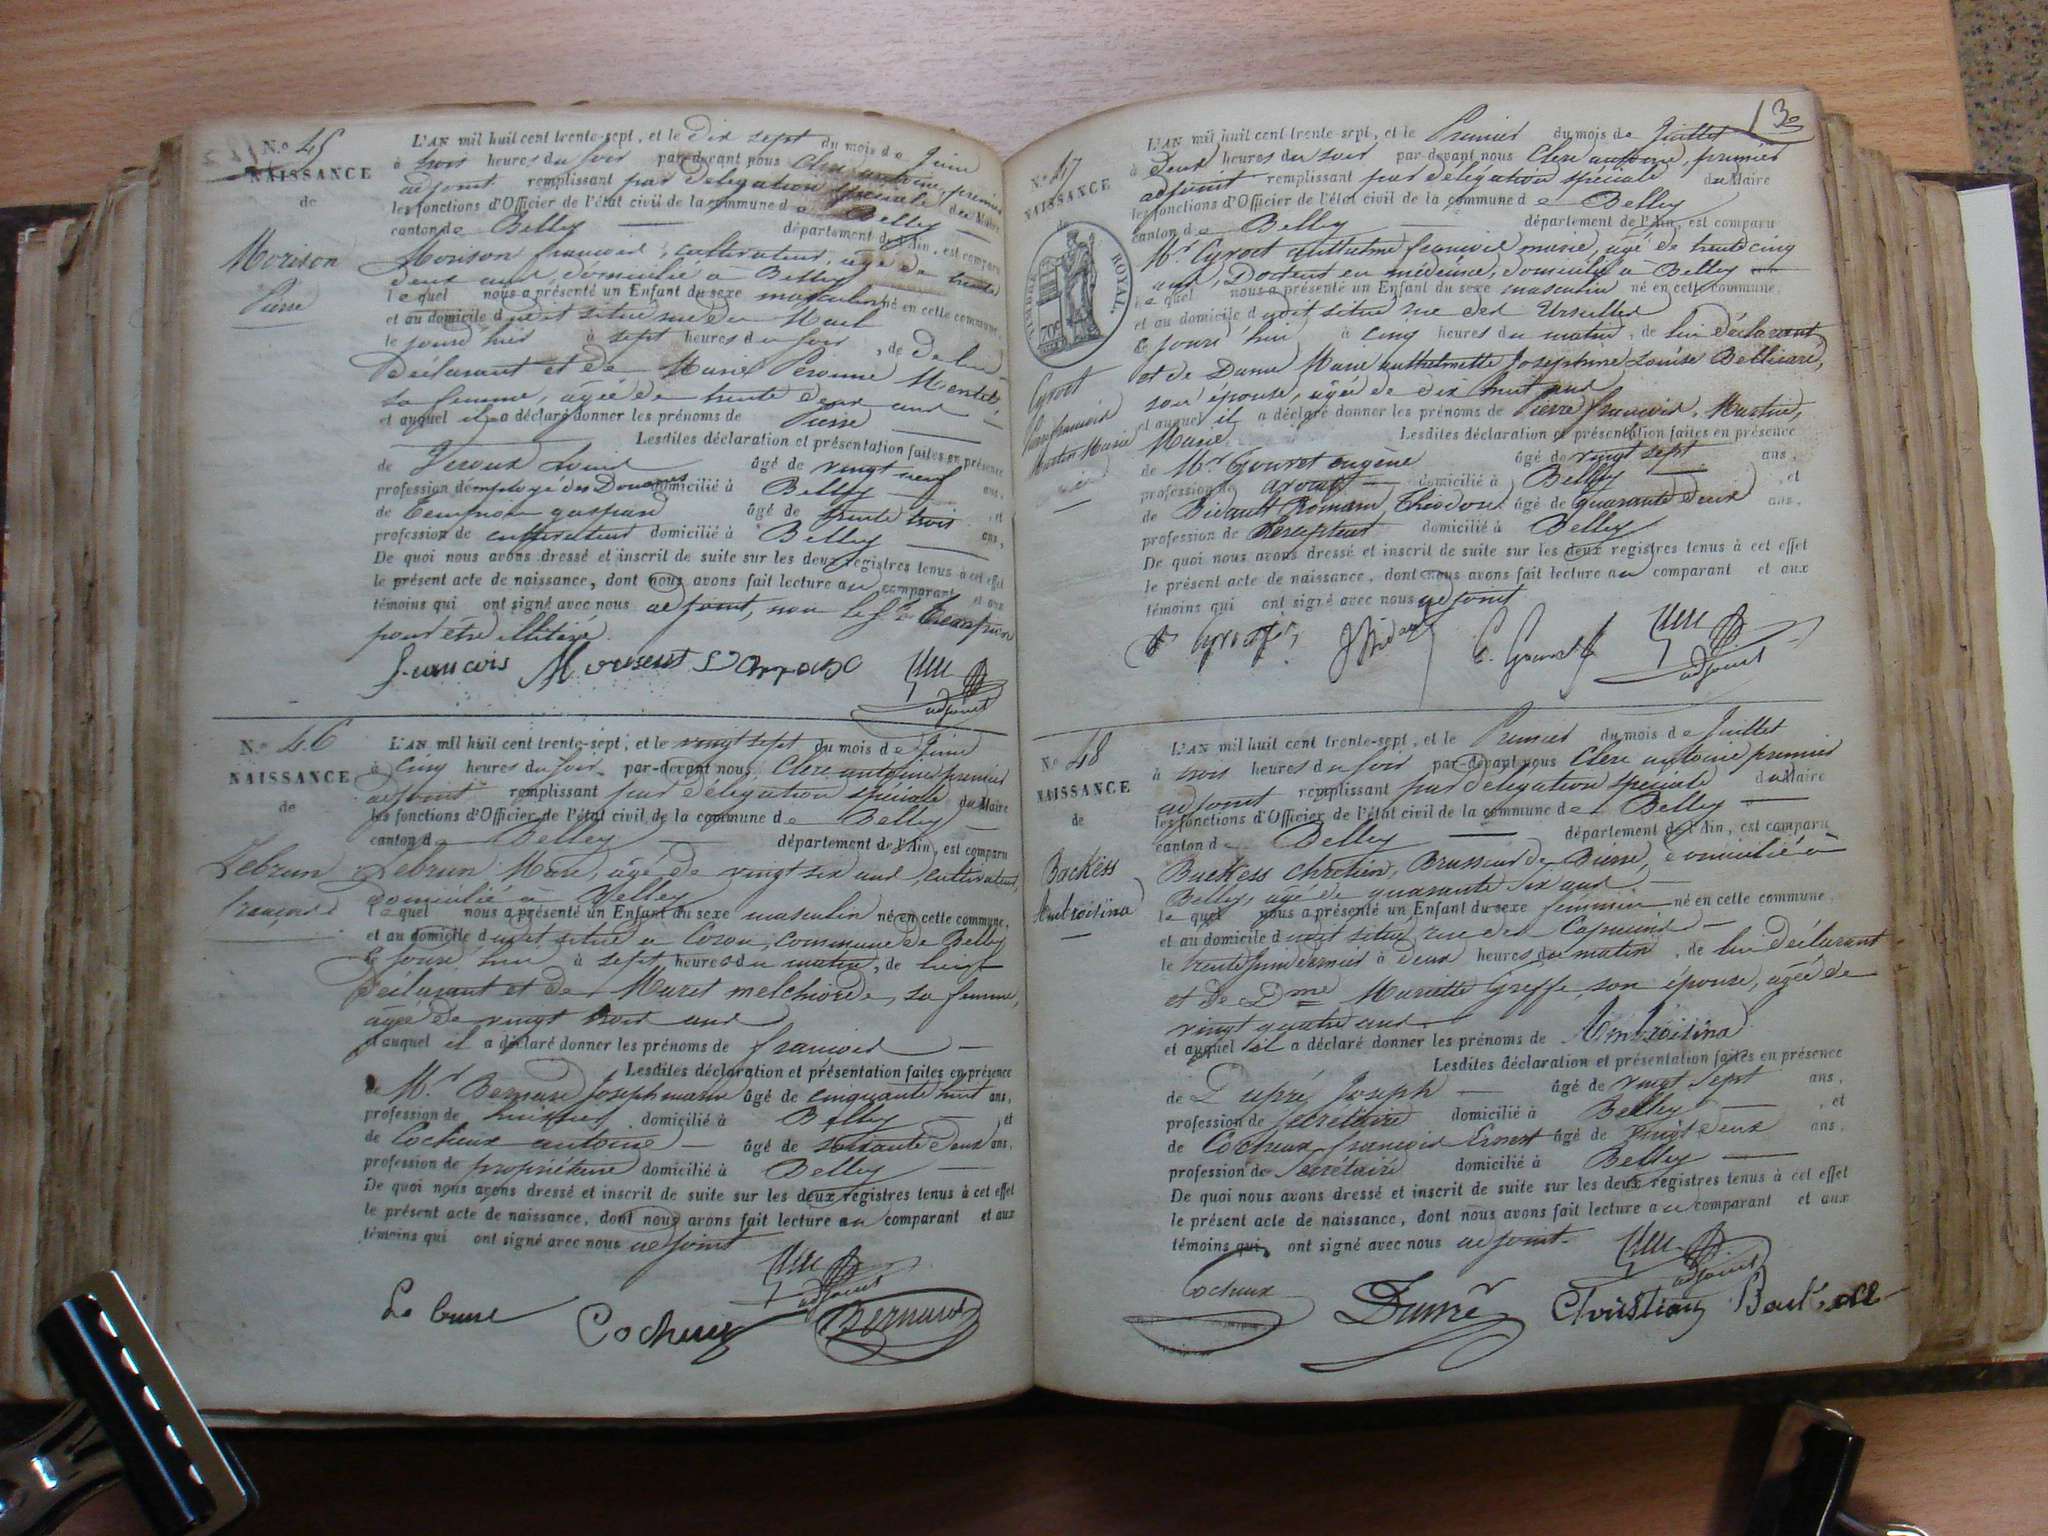 N.º 45
NAISSANCE
de
Morison
Pierre
L'AN mil huit cent trente-sept, et le dix sept du mois de Juin
à trois heures du soir par-devant nous Clerc antoine, premier
adjoint remplissant par délégation spéciale du Maire
les fonctions d'Officier de l'état civil de la commune de Belley
canton de Belley département de l'Ain, est comparu
Morison françois, cultivateur, âgé de trente
deux ans, domicilié à Belley
lequel nous a présenté un Enfant du sexe masculin né en cette commune,
et au domicile dudit situé rue du Mail
le jourd'hier à sept heures du soir, de de lui
déclarant et de Marie Peronne Mentel,
sa femme, âgée de trente deux ans
et auquel il a déclaré donner les prénoms de Pierre
Lesdites déclaration et présentation faites en présence
de Louis âgé de vingt neuf ans,
profession d'employé des Douanes domicilié à Belley, et
de gaspard âgé de trente trois ans,
profession de cultivateur domicilié à Belley
De quoi nous avons dressé et inscrit de suite sur les deux registres tenus à cet effet
le présent acte de naissance, dont nous avons fait lecture au comparant et aux
témoins qui ont signé avec nous adjoint, non le Sr
pour être illitéré.
françois
adjoint
N.º 46
NAISSANCE
de
Lebrun
François
L'AN mil huit cent trente-sept, et le vingt sept du mois de Juin
à cinq heures du soir par-devant nous Clerc antoine premier
adjoint remplissant par délégation spéciale du Maire
les fonctions d'Officier de l'état civil de la commune de Belley
canton de Belley département de l'Ain, est comparu
Lebrun Marc, âgé de vingt six ans, cultivateur,
domicilié à Belley
lequel nous a présenté un Enfant du sexe masculin né en cette commune,
et au domicile dudit situé à Coron, commune de Belley
le jourd'hui à sept heures du matin, de lui
déclarant et de Muret melchiorde, sa femme,
âgée de vingt trois ans
et auquel il a déclaré donner les prénoms de françois
Lesdites déclaration et présentation faites en présence
de Mr. Bernard Joseph marin âgé de cinquante huit ans,
profession de huissier domicilié à Belley, et
de Cocheux antoine âgé de soixante deux ans,
profession de propriétaire domicilié à Belley
De quoi nous avons dressé et inscrit de suite sur les deux registres tenus à cet effet
le présent acte de naissance, dont nous avons fait lecture au comparant et aux
témoins qui ont signé avec nous adjoint
adjoint
Le brun Cocheux Bernard
30
N.º 47
NAISSANCE
de
TIMBRE ROYAL
70c
Cyvoct
Pierre françois
Martin Marie
L'AN mil huit cent trente-sept, et le Premier du mois de Juillet
à Deux heures du soir par-devant nous Clerc antoine, premier
adjoint remplissant par délégation spéciale du Maire
les fonctions d'Officier de l'état civil de la commune de Belley
canton de Belley département de l'Ain, est comparu
Mr. Cyvoct anthelme françois marie, âgé de trente cinq
ans, Docteur en médecine, domicilié à Belley
lequel nous a présenté un Enfant du sexe masculin né en cette commune,
et au domicile dudit situé rue des Ursulles
le jourd'hui à cinq heures du matin, de lui déclarant
et de Dame Marie anthelmette Josephine Louise Bellicard,
son épouse, âgée de dix huit ans
et auquel il a déclaré donner les prénoms de Pierre françois, Martin,
Marie Lesdites déclaration et présentation faites en présence
de Mr. Gouvet eugène âgé de vingt sept ans,
profession de avocat domicilié à Belley, et
de Romain Théodore âgé de quarante deux ans,
profession de domicilié à Belley
De quoi nous avons dressé et inscrit de suite sur les deux registres tenus à cet effet
le présent acte de naissance, dont nous avons fait lecture au comparant et aux
témoins qui ont signé avec nous adjoint
adjoint
N.º 48
NAISSANCE
de
Backess
Ambroisina
L'AN mil huit cent trente-sept, et le Premier du mois de Juillet
à trois heures du soir par-devant nous Clerc antoine premier
adjoint remplissant par délégation spéciale du Maire
les fonctions d'Officier de l'état civil de la commune de Belley
canton de Belley département de l'Ain, est comparu
Backess chrétien, Brasseur de Bierre, domicilié à
Belley, âgé de quarante six ans
lequel nous a présenté un Enfant du sexe féminin né en cette commune,
et au domicile dudit situé rue des Capucins
le trente Juin dernier à deux heures du matin, de lui déclarant
et de Dme Mariette Greffe, son épouse, âgée de
vingt quatre ans.
et auquel il a déclaré donner les prénoms de Ambroisina
Lesdites déclaration et présentation faites en présence
de Dupré Joseph âgé de vingt sept ans,
profession de secrétaire domicilié à Belley, et
de Cocheux françois Ernest âgé de vingt deux ans,
profession de Secrétaire domicilié à Belley
De quoi nous avons dressé et inscrit de suite sur les deux registres tenus à cet effet
le présent acte de naissance, dont nous avons fait lecture au comparant et aux
témoins qui ont signé avec nous adjoint
adjoint
Cocheux Dupré Christian